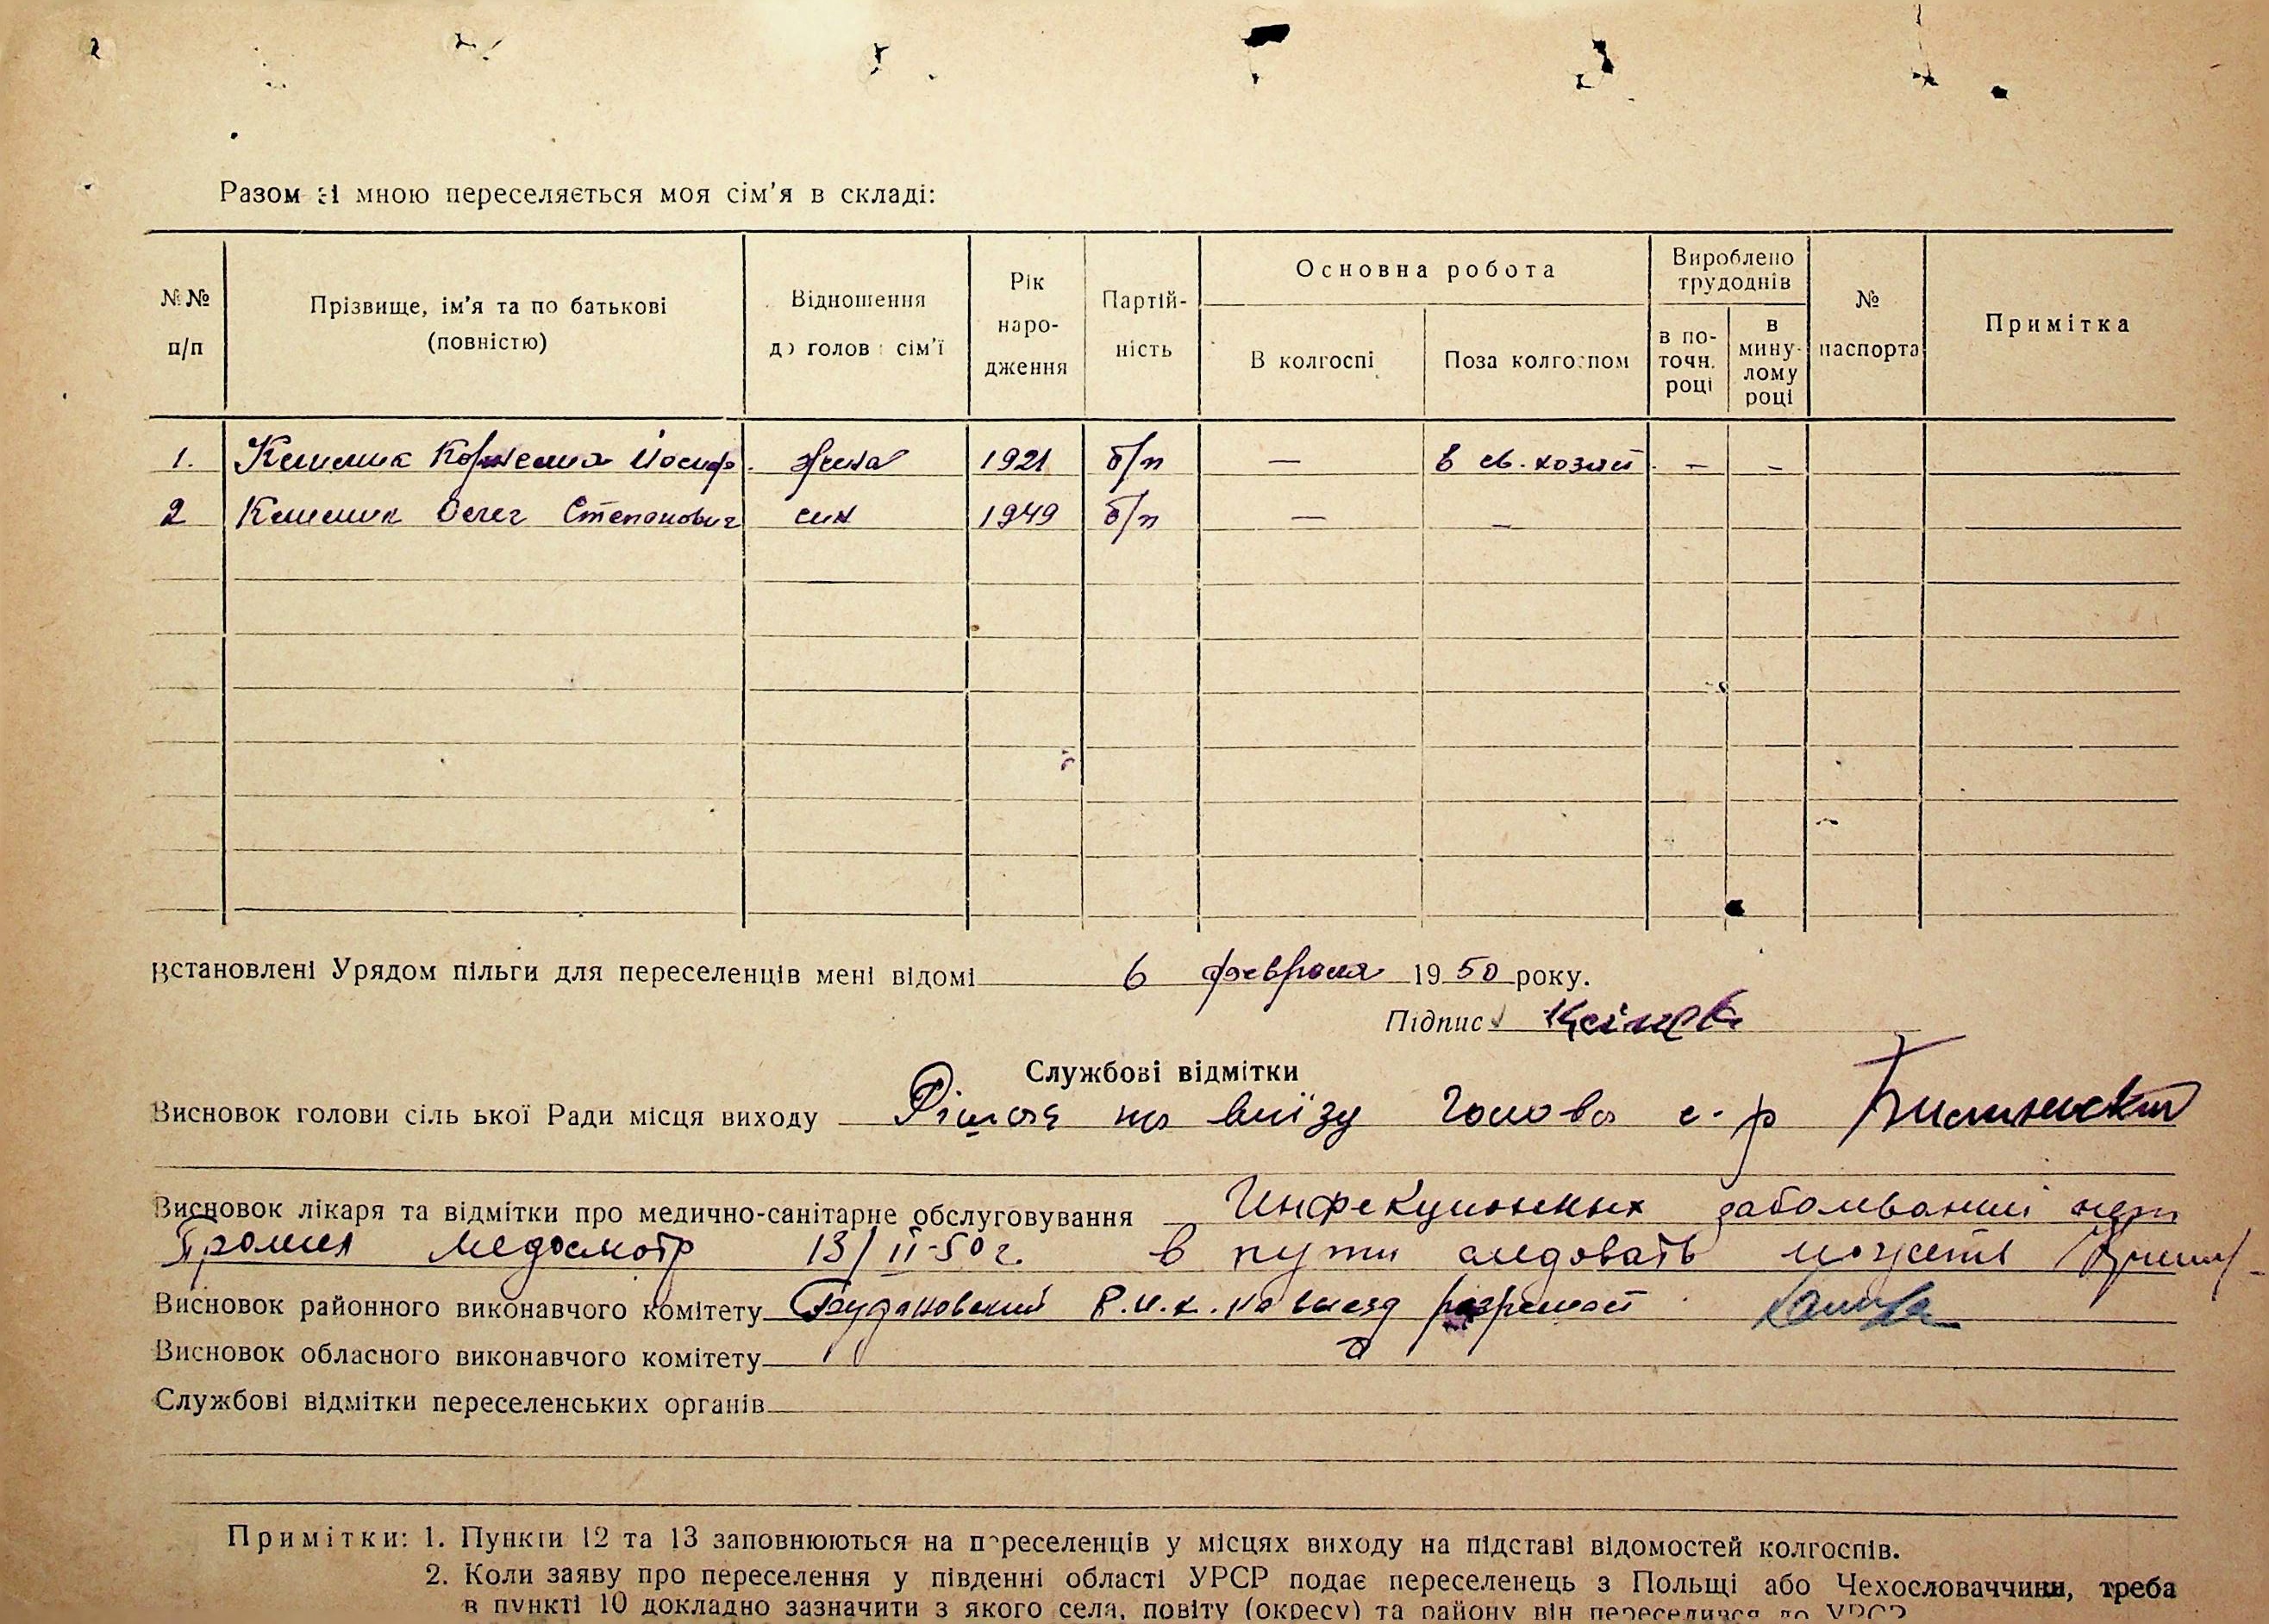 Разом зі мною переселяється моя сім'я в складі:
№№ п/п
Прізвище, ім'я та по батькові (повністю)
Відношення до голов сім'ї
Рік народження
Партій-ність
Основна робота
В колгоспі
Поза колгоспом
Вироблено трудоднів
в по-точн. році
в мину-лому році
№ паспорта
Примітка
1. Йосиф. 1921 б/п — в св. хозяй. — –
2 Олег Степанович син 1949 б/п — –
Встановлені Урядом пільги для переселенців мені відомі 6 февраля 1950 року.
Підпис
Службові відмітки
Висновок голови сільської Ради місця виходу на виїзу Голова с. р
Висновок лікаря та відмітки про медично-санітарне обслуговування Инфекционных заболеваний нет
Прошел медосмотр 13/II-50 г. в пути следовать может
Висновок районного виконавчого комітету Будановский Р.и.к. на выезд
Висновок обласного виконавчого комітету
Службові відмітки переселенських органів
Примітки: 1. Пункти 12 та 13 заповнюються на переселенців у місцях виходу на підставі відомостей колгоспів.
2. Коли заяву про переселення у південні області УРСР подає переселенець з Польщі або Чехословаччини, треба
в пункті 10 докладно зазначити з якого села, повіту (окресу) та району він переселився до УРСР